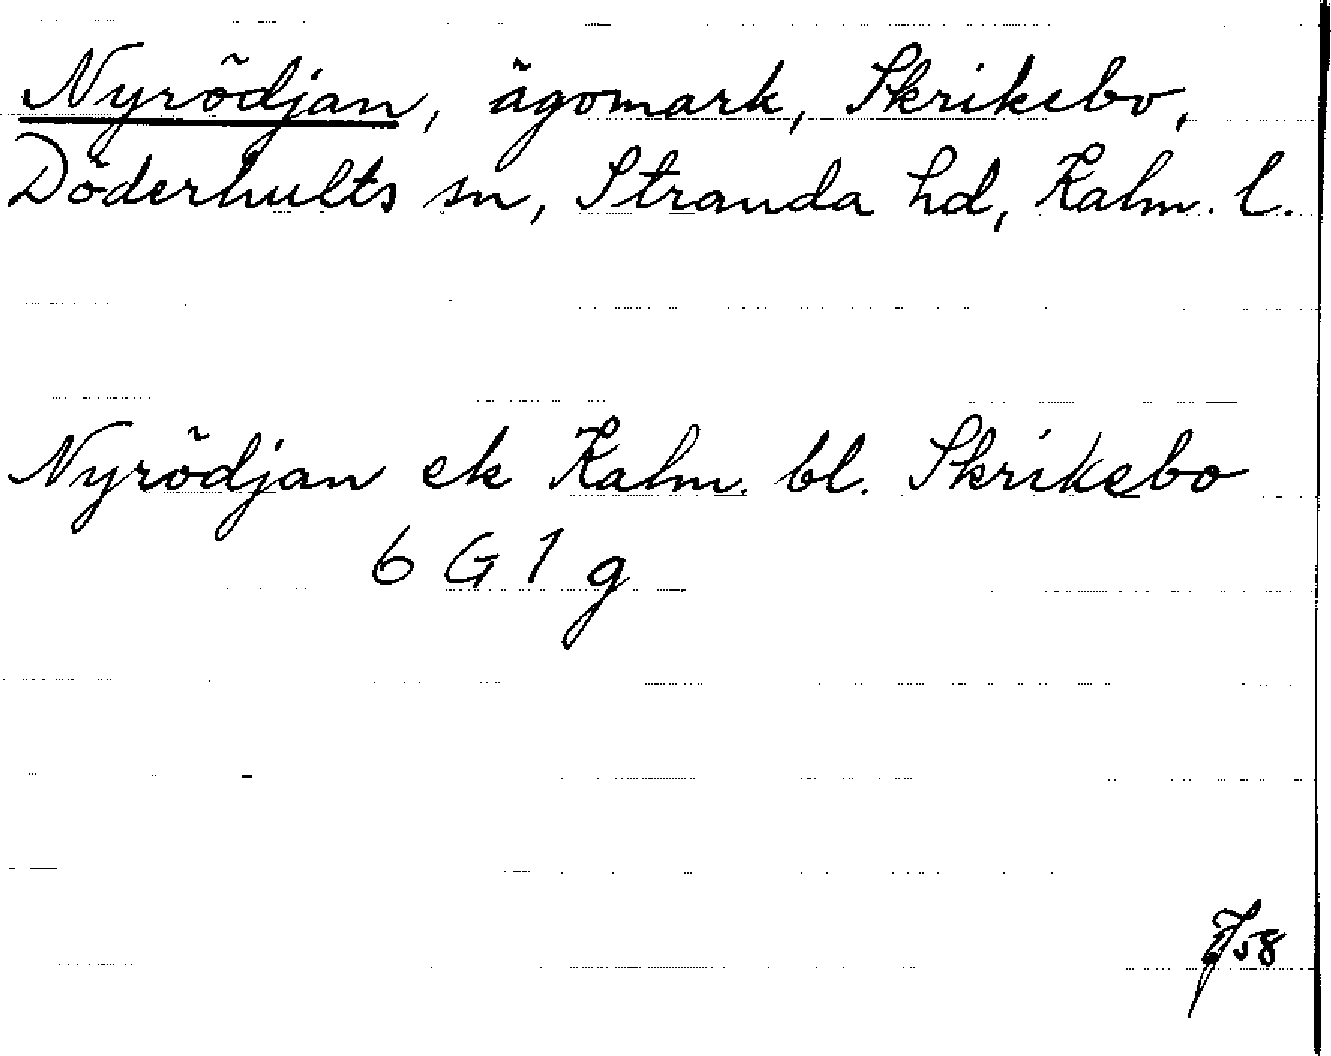 Nyrödjan, ägomark, Skrikebo,
Döderhults sn, Stranda hd, Kalm. l.
Nyrödjan ek Kalm. bl. Skrikebo
6 G 1 g
58